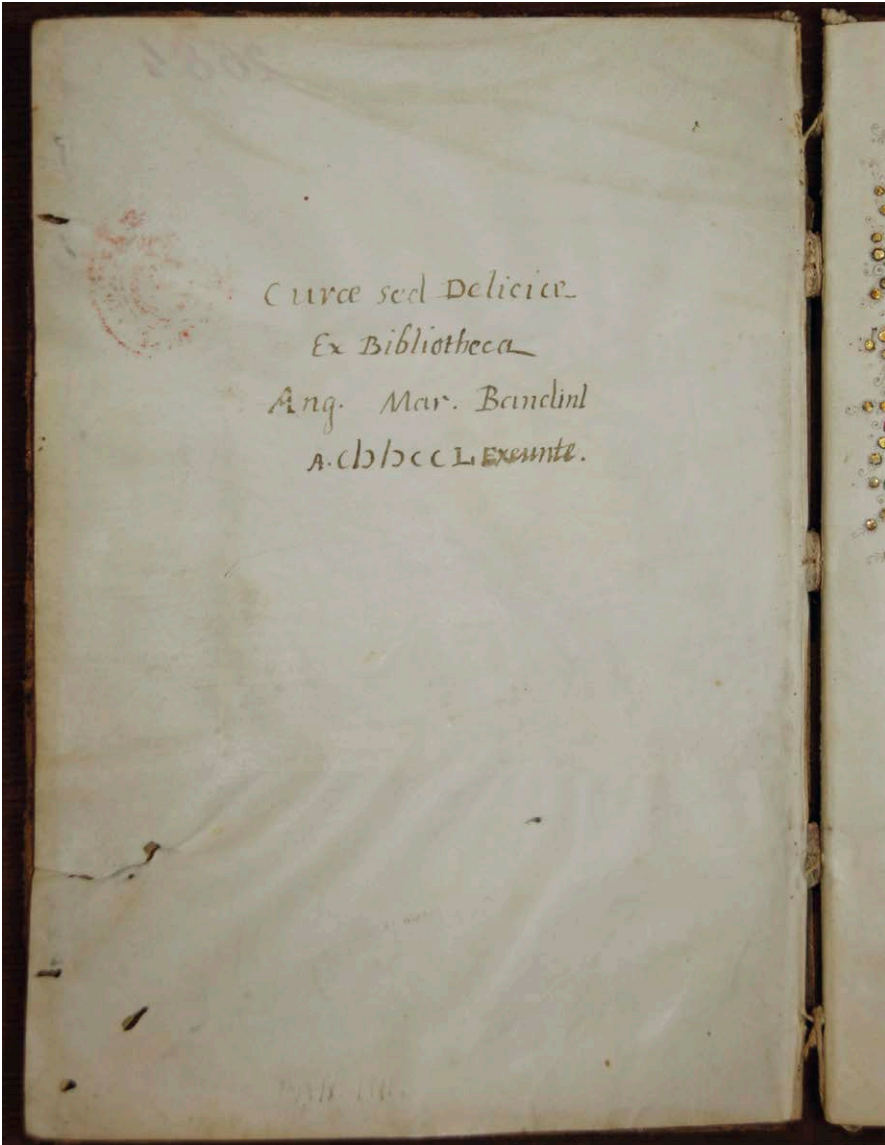 Curæ sed Deliciæ
Ex Bibliotheca
Ang. Mar. Bandini
A. CIↃIↃCCL Exeunte.